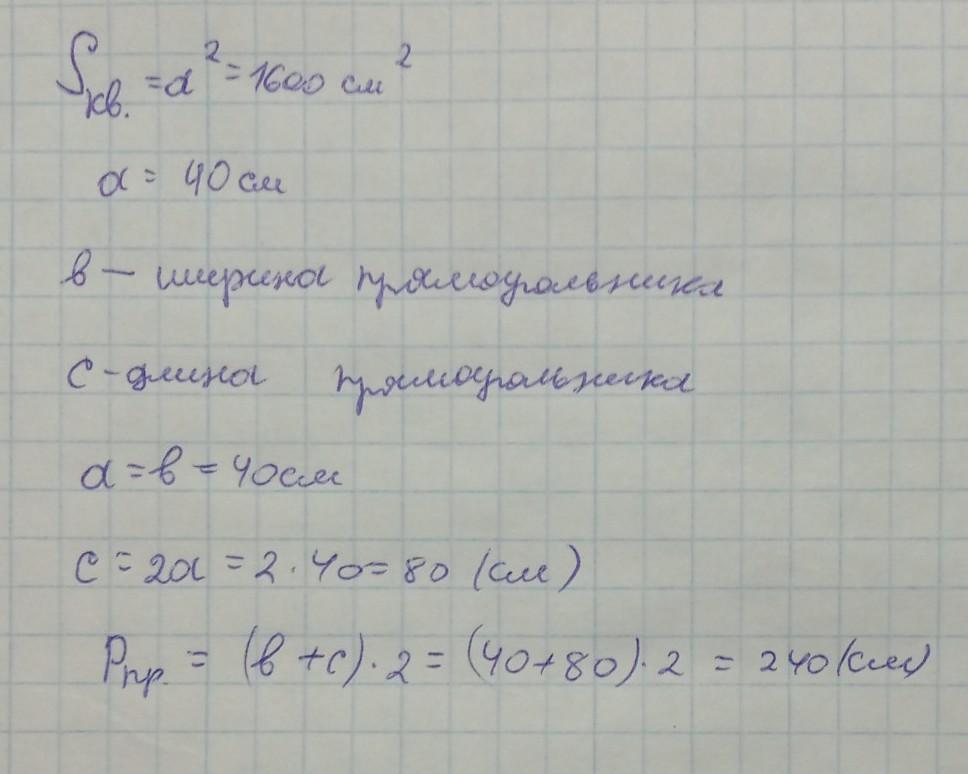 Sкв. = a² = 1600 см²
a = 40 см
в — ширина прямоугольника
c - длина прямоугольника
a = в = 40 см
c = 2a = 2 · 40 = 80 (см)
Pпр. = (в + c) · 2 = (40 + 80) · 2 = 240 (см)